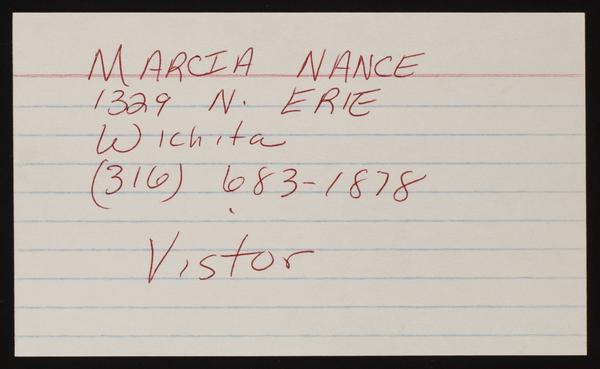 MARCIA NANCE
1329 N. ERIE
Wichita
(316) 683-1878
Vistor